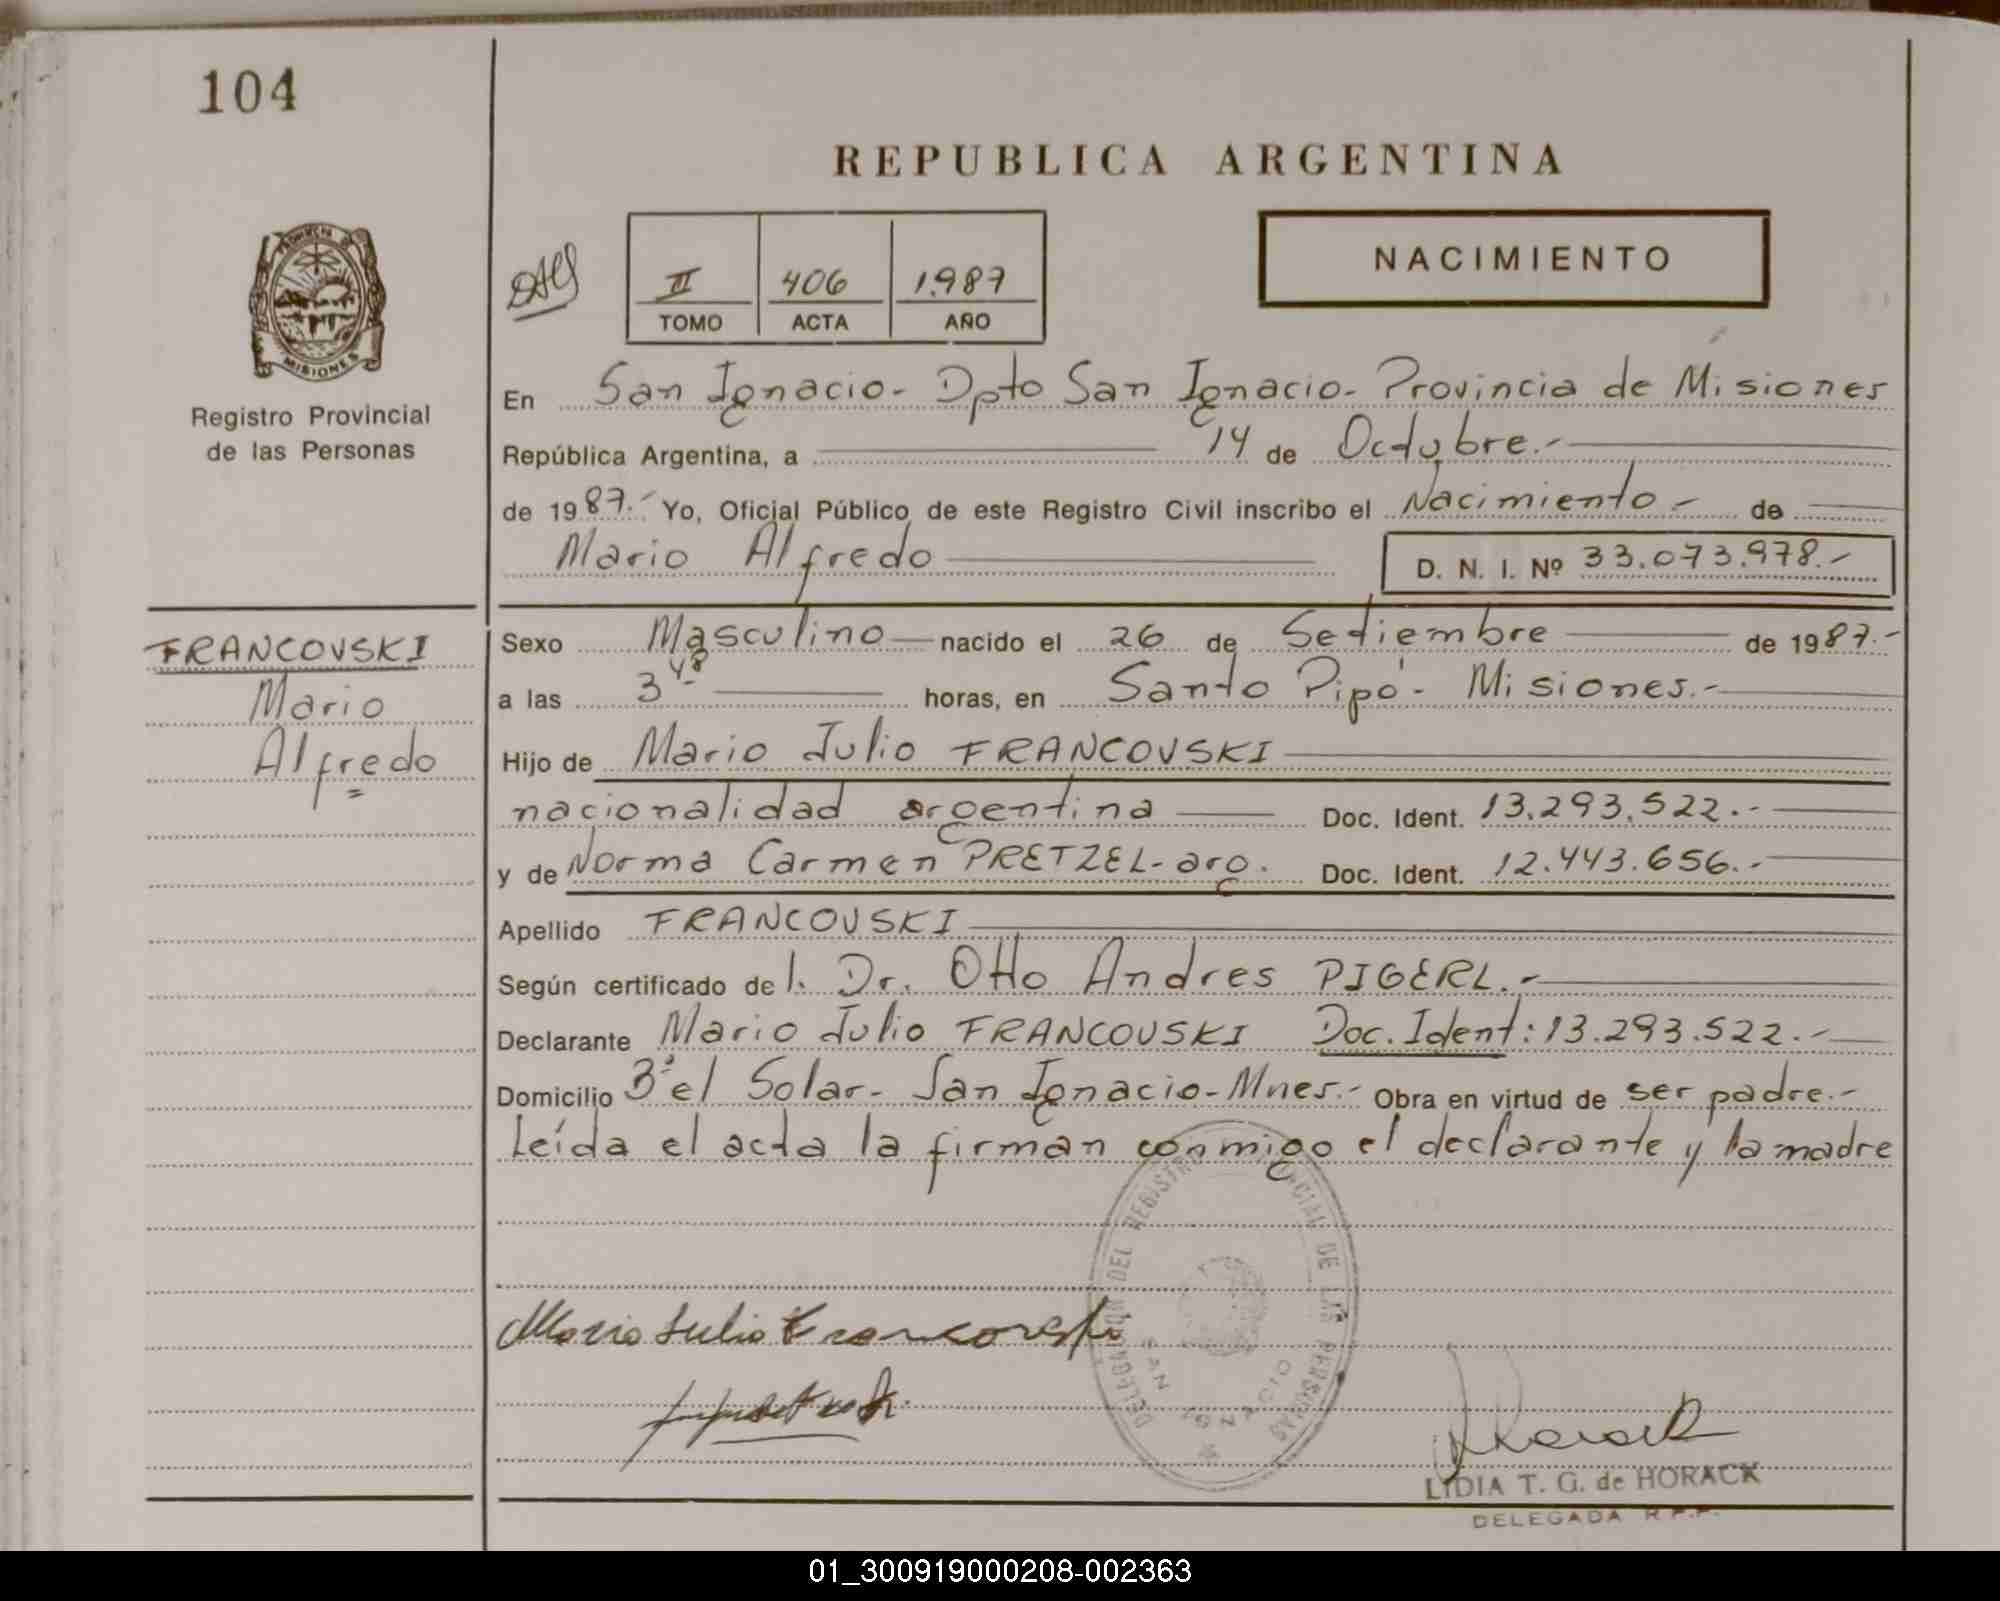 104
REPUBLICA ARGENTINA
NACIMIENTO
II 406 1.987
TOMO ACTA AÑO
PROVINCIA DE
MISIONES
Registro Provincial
de las Personas
En San Ignacio - Dpto San Ignacio - Provincia de Misiones
República Argentina, a 14 de Octubre.-
de 1987.- Yo, Oficial Público de este Registro Civil inscribo el Nacimiento - de
Mario Alfredo D. N. I. Nº 33.073.978.-
FRANCOVSKI
Mario
Alfredo
Sexo Masculino nacido el 26 de Setiembre de 1987.-
a las 3 48 horas, en Santo Pipó - Misiones.-
Hijo de Mario Julio FRANCOVSKI
nacionalidad argentina Doc. Ident. 13.293.522.-
y de Norma Carmen PRETZEL - arg. Doc. Ident. 12.443.656.-
Apellido FRANCOVSKI
Según certificado del. Dr. Otto Andres PIGERL.-
Declarante Mario Julio FRANCOVSKI Doc. Ident: 13.293.522.-
Domicilio Bº el Solar - San Ignacio - Mnes.- Obra en virtud de ser padre.-
Leída el acta la firman conmigo el declarante y la madre
DELEGACION DEL REGISTRO PROVINCIAL DE LAS PERSONAS
SAN IGNACIO
Mario Julio Francovski
LIDIA T. G. de HORACK
DELEGADA R.P.P.
01_300919000208-002363